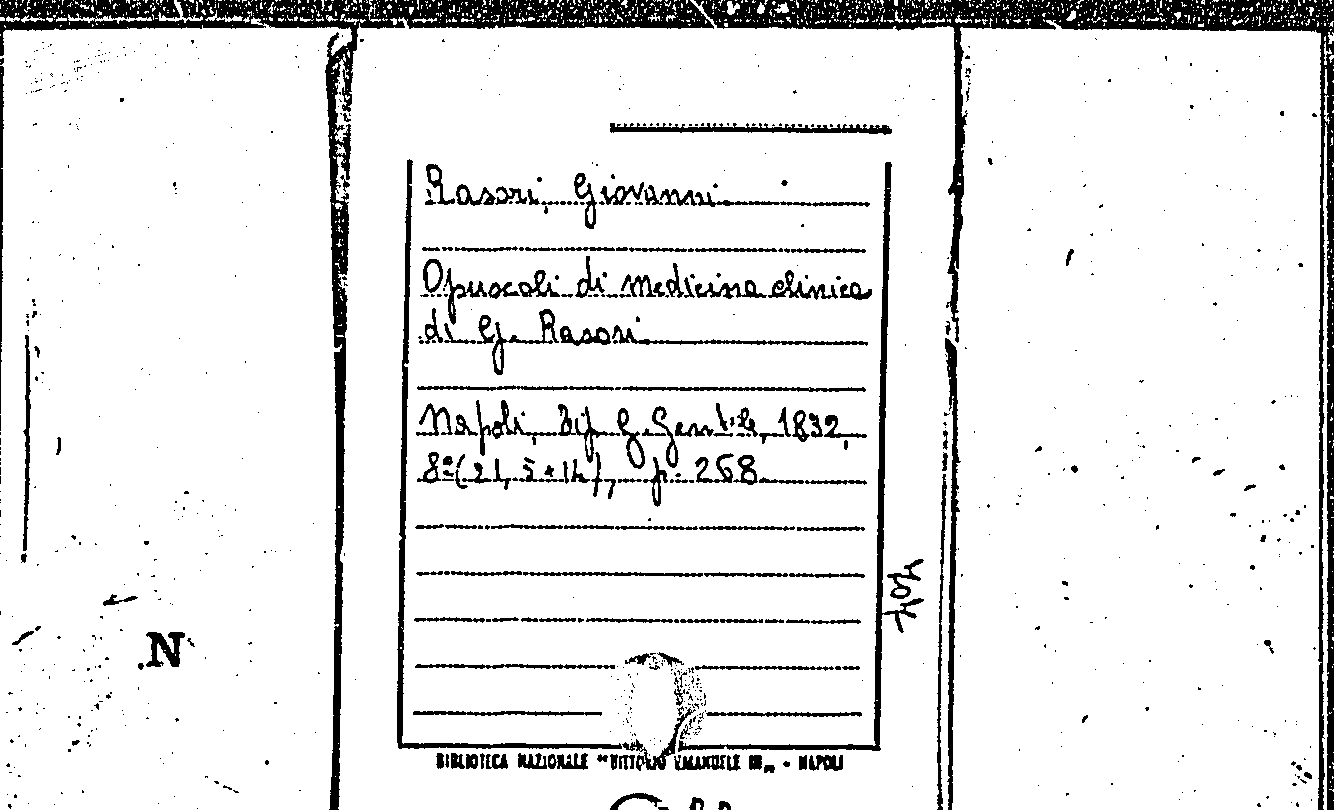 Rasori, Giovanni.
Opuscoli di medicina clinica
di G. Rasori.
Napoli, Tip. G. Gentile, 1832,
8º(21,5*14), p. 268.
N
BIBLIOTECA NAZIONALE "VITTORIO EMANUELE III„ - NAPOLI